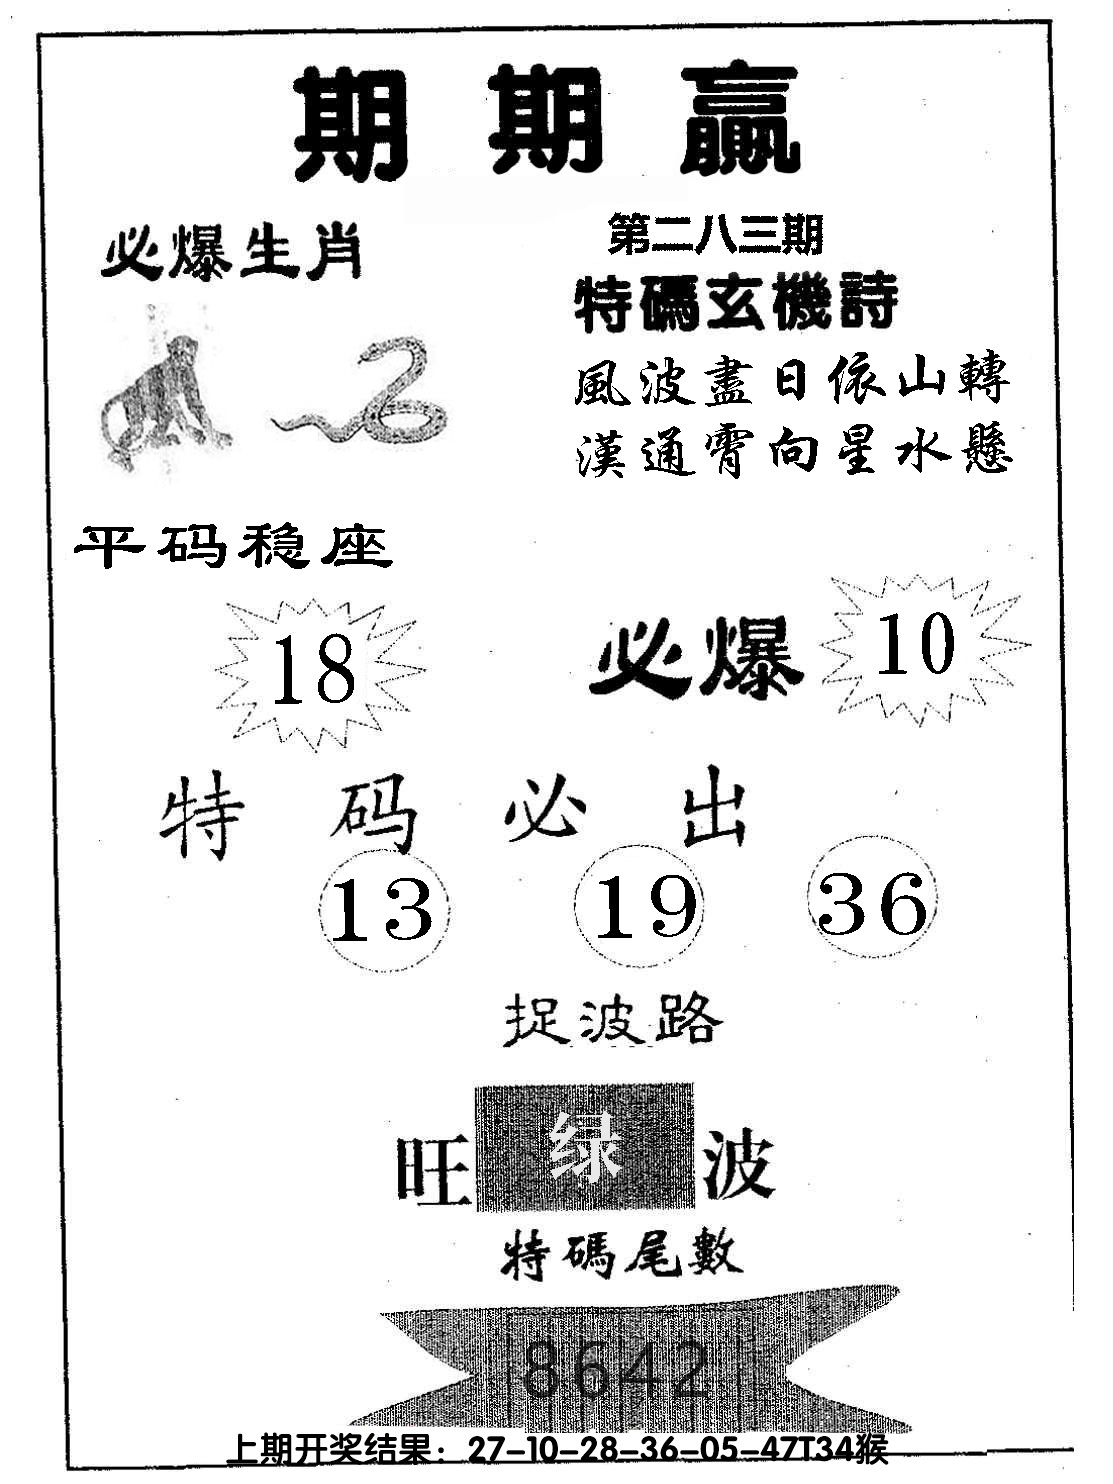 期期贏
必爆生肖
第二八三期
特碼玄機詩
風波盡日依山轉
漢通霄向星水懸
平码稳座
18
必爆 10
特码必出
13 19 36
捉波路
旺 绿 波
特碼尾數
8642
上期开奖结果：27-10-28-36-05-47T34猴